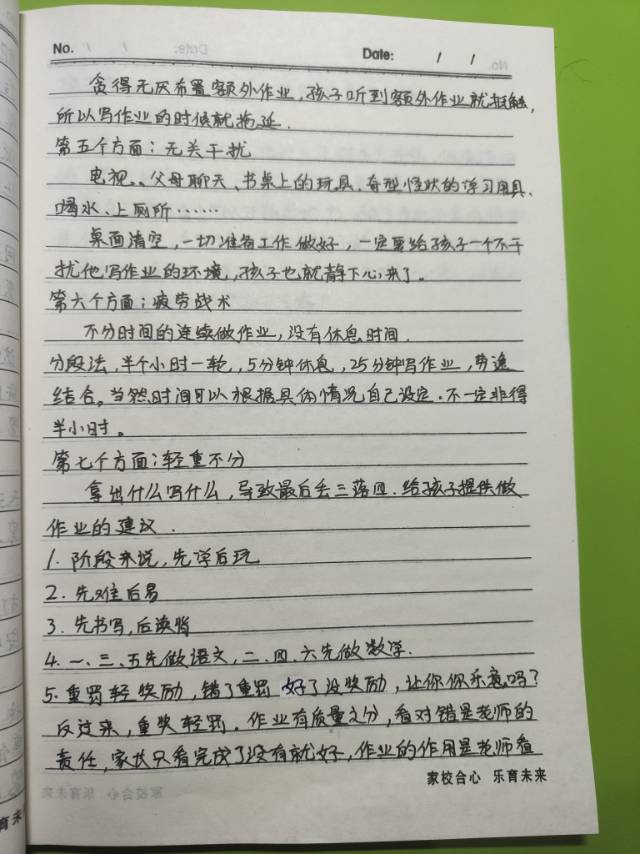 No.
Date: / /
贪得无厌布置额外作业,孩子听到额外作业就抵触,
所以写作业的时候就拖延.
第五个方面:无关干扰
电视、父母聊天、书桌上的玩具、奇型怪状的学习用具、
喝水、上厕所……
桌面清空,一切准备工作做好,一定要给孩子一个不干
扰他写作业的环境,孩子也就静下心来了。
第六个方面:疲劳战术
不分时间的连续做作业,没有休息时间.
分段法,半个小时一轮,5分钟休息,25分钟写作业,劳逸
结合。当然时间可以根据具体情况自己设定.不一定非得
半小时。
第七个方面:轻重不分
拿出什么写什么,导致最后丢三落四.给孩子提供做
作业的建议.
1.阶段来说,先学后玩
2.先难后易
3.先书写,后读背
4.一、三、五先做语文,二、四、六先做数学.
5.重罚轻奖励,错了重罚 好了没奖励,让你你乐意吗?
反过来,重奖轻罚.作业有质量之分,看对错是老师的
责任,家长只看完成了没有就好,作业的作用是老师看
家校合心 乐育未来